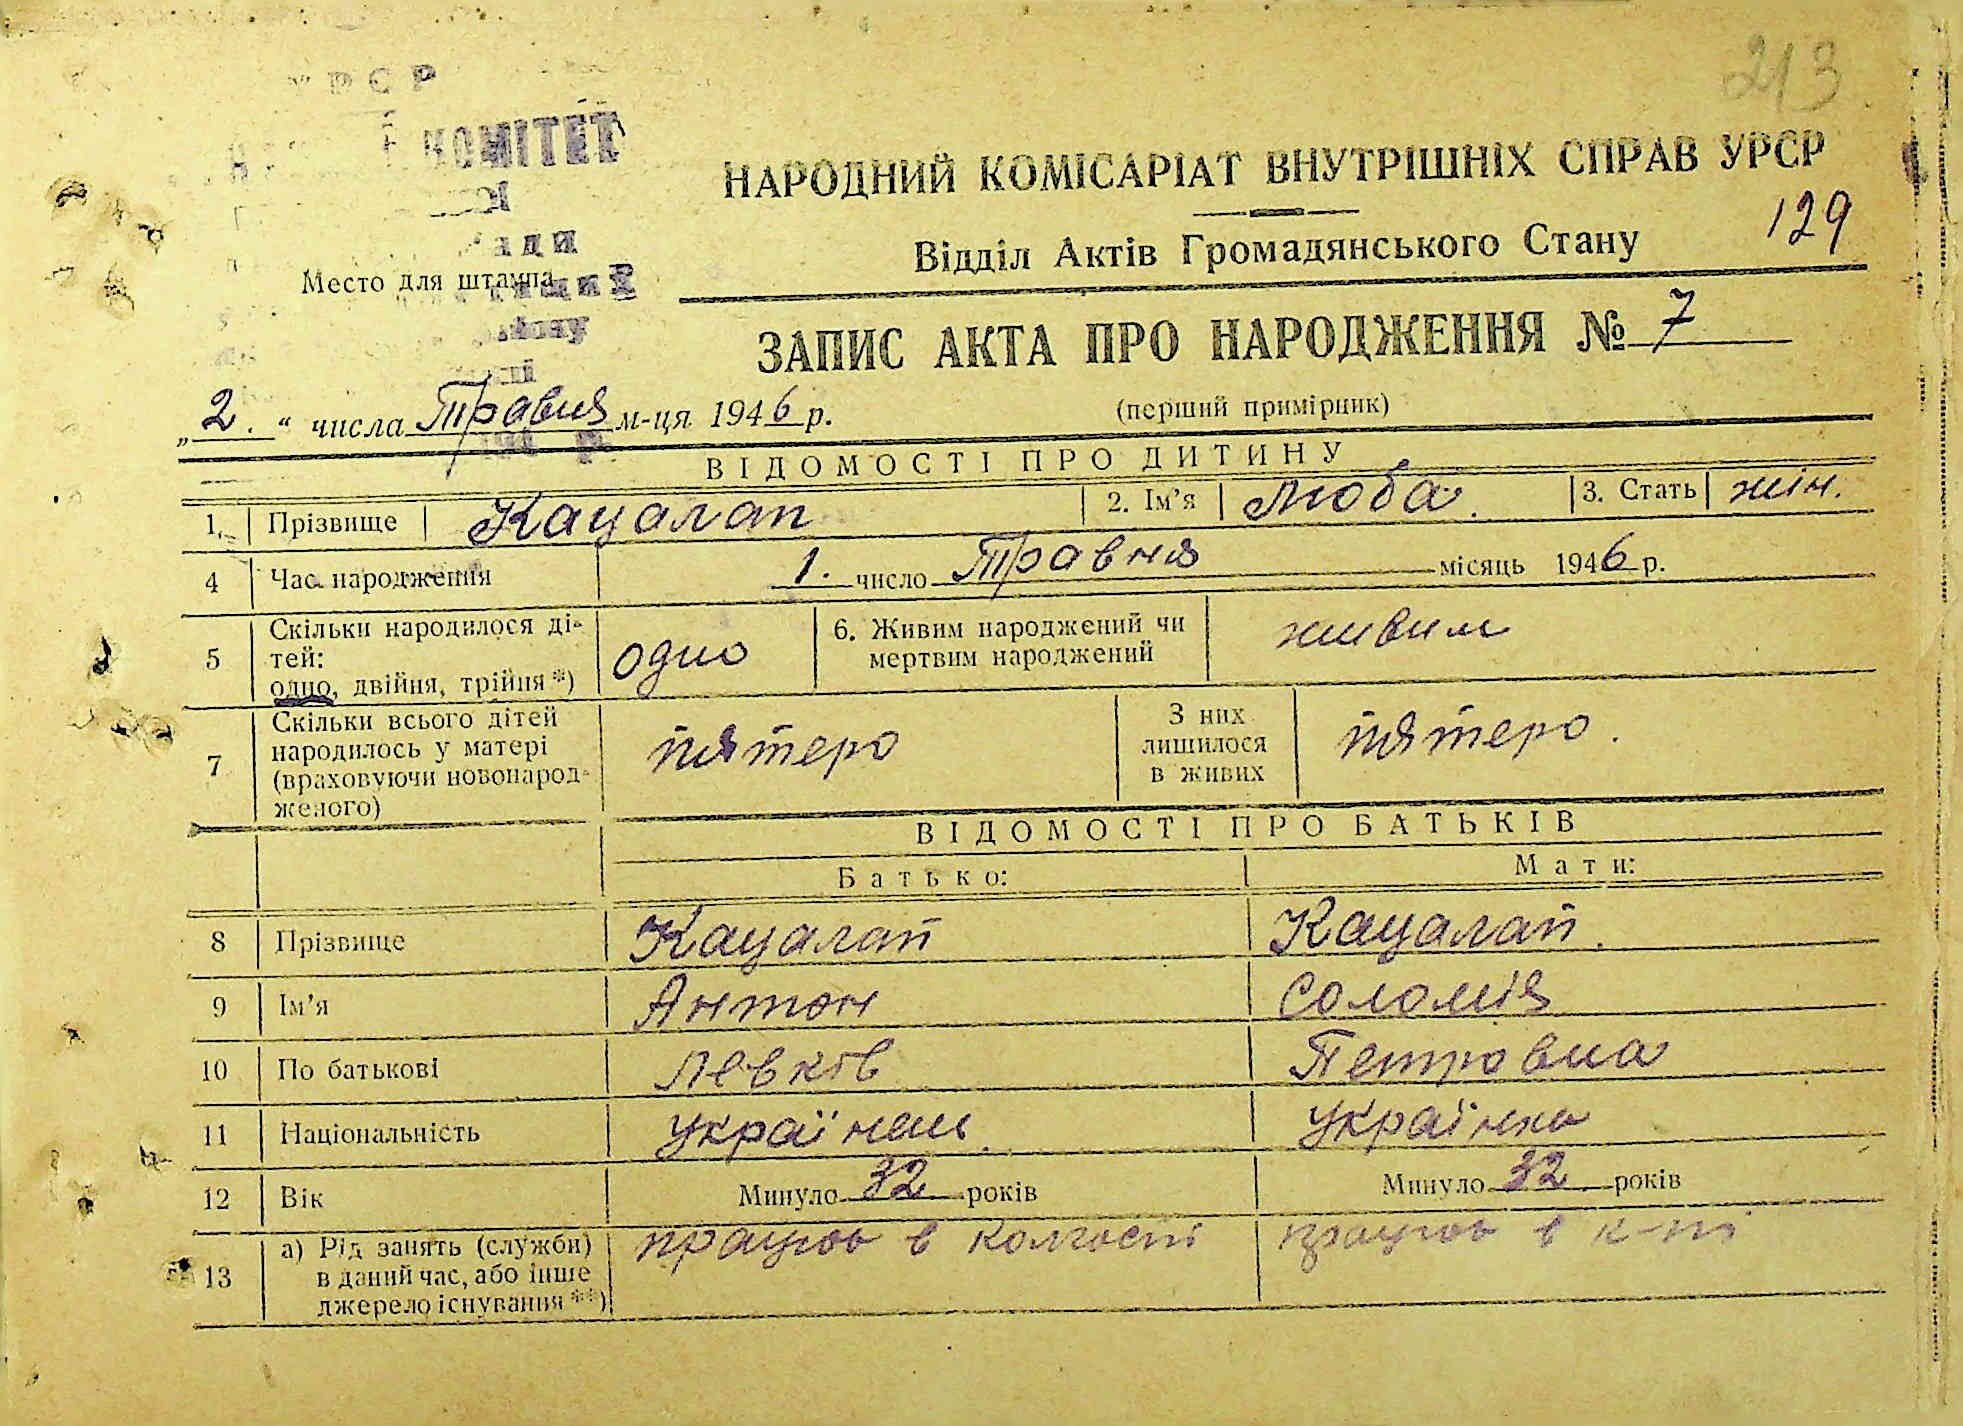 213
КОМІТЕТ
НАРОДНИЙ КОМІСАРІАТ ВНУТРІШНІХ СПРАВ УРСР
129
Відділ Актів Громадянського Стану
Место для штампа
ЗАПИС АКТА ПРО НАРОДЖЕННЯ № 7
(перший примірник)
„2.“ числа Травня м-ця 1946 р.
ВІДОМОСТІ ПРО ДИТИНУ
1. Прізвище Кацалап 2. Ім’я Люба. 3. Стать жін.
4 Час народження 1. число Травня місяць 1946 р.
5 Скільки народилося ді-
тей:
одно, двійня, трійня*) одно 6. Живим народжений чи
мертвим народжений живим
7 Скільки всього дітей
народилось у матері
(враховуючи новонарод-
женого) пятеро З них
лишилося
в живих пятеро.
ВІДОМОСТІ ПРО БАТЬКІВ
Батько: Мати:
8 Прізвище Кацалап Кацалап.
9 Ім’я Антон Соломія
10 По батькові Левків Петровна
11 Національність Українець Українка
12 Вік Минуло 32 років Минуло 32 років
13 а) Рід занять (служби)
в даний час, або інше
джерело існування**) працює в колгоспі працює в к-пі